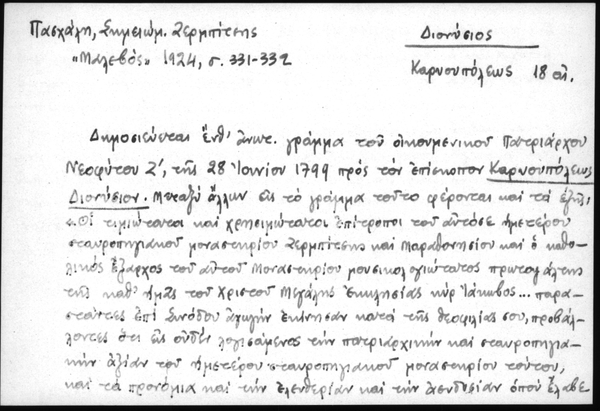 Πασχάλη, Σημειώμ. Ζερμπίτσης
Διονύσιος
«Μαλεβός» 1924, σ. 331-332
Καρυουπόλεως 18 αἰ.
Δημοσιεύεται ἔνθ' ἀνωτ. γράμμα τοῦ οἰκουμενικοῦ Πατριάρχου
Νεοφύτου Ζ', τῆς 28 Ἰουνίου 1799 πρός τόν ἐπίσκοπον Καρυουπόλεως
Διονύσιον. Μεταξύ ἄλλων εἰς τό γράμμα τοῦτο φέρονται καί τά ἑξῆς:
«Οἱ τιμιώτατοι καί χρησιμώτατοι ἐπίτροποι τοῦ αὐτόσε ἡμετέρου
σταυροπηγιακοῦ μοναστηρίου Ζερμπίτσης καί Μαραθονησίου καί ὁ καθο-
λικός ἔξαρχος τοῦ αὐτοῦ μοναστηρίου μουσικολογιώτατος πρωτοψάλτης
τῆς καθ' ἡμᾶς τοῦ Χριστοῦ Μεγάλης Ἐκκλησίας κύρ Ἰάκωβος... παρα-
στάντες ἐπί Συνόδου ἀγωγήν ἐκίνησαν κατά τῆς θεοφιλίας σου, προβάλ-
λοντες ὅτι εἰς οὐδέν λογισάμενος τήν πατριαρχικήν καί σταυροπηγια-
κήν ἀξίαν τοῦ ἡμετέρου σταυροπηγιακοῦ μοναστηρίου τούτου,
καί τά προνόμια καί τήν ἐλευθερίαν καί τήν ἀσυδοσίαν ὁποῦ ἔλαβε